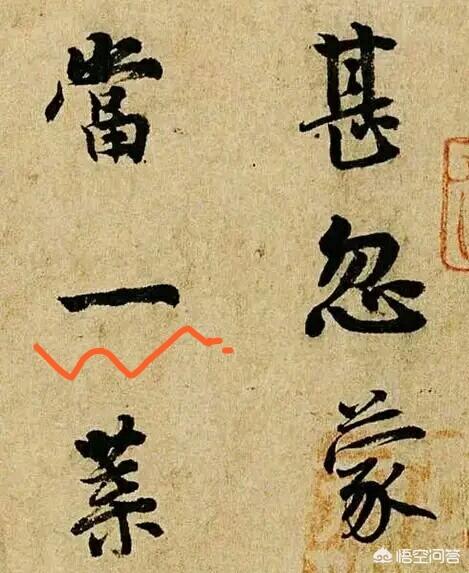 甚忽蒙
當一葉
悟空问答